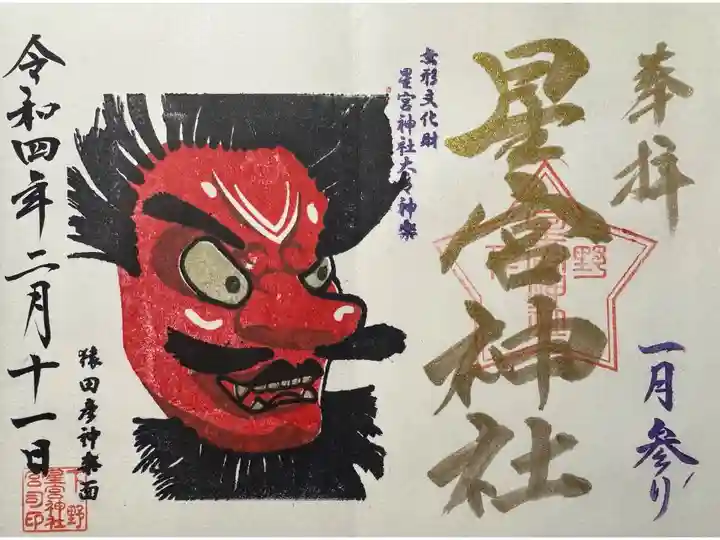 奉拝
一月参り
星宮神社
無形文化財
星宮神社太々神楽
猿田彦神楽面
令和四年二月十一日
下野
星宮神社
宮司印